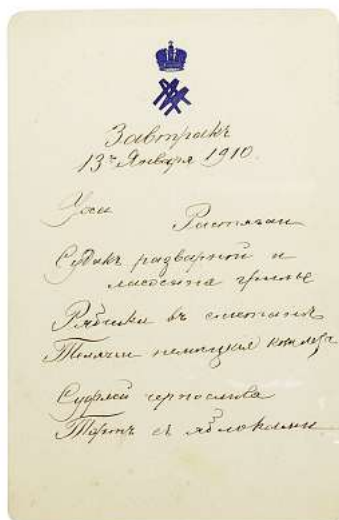 Завтракъ
13го Января 1910.
Уха
Разтегаи
Судакъ разварной и
лососина грилье
Рябчики въ сметанѣ
Телячьи немецкия
Суфлей чернослива
Тортъ съ яблоками